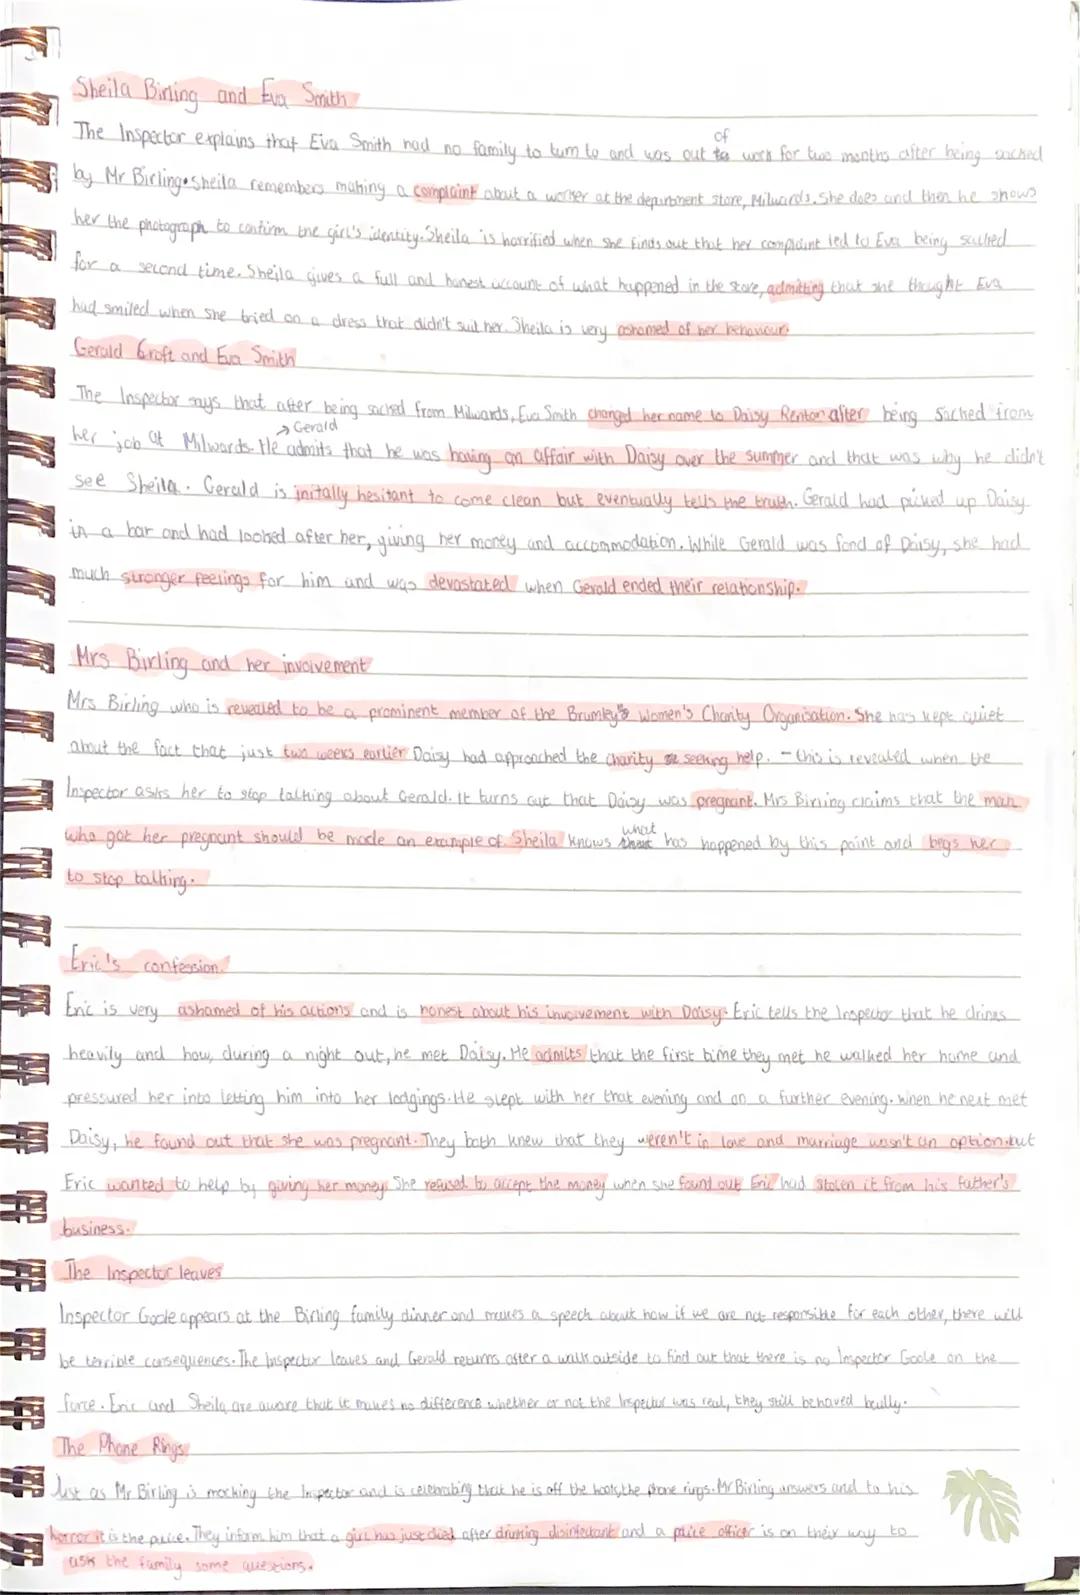 Sheila Birling and Eva Smith
The Inspector explains that Eva Smith had no family to turn to and was out of work for two months after being sacked
by Mr Birling. Sheila remembers making a complaint about a worker at the department store, Milwards. She does and then he shows
her the photograph to confirm the girl's identity. Sheila is horrified when she finds out that her complaint led to Eva being sacked
for a second time. Sheila gives a full and honest account of what happened in the store, admitting that she thought Eva
had smiled when she tried on a dress that didn't suit her. Sheila is very ashamed of her behaviour.
Gerald Croft and Eva Smith
The Inspector says that after being sacked from Milwards, Eva Smith changed her name to Daisy Renton after being sacked from
→ Gerald
her job at Milwards. He admits that he was having an affair with Daisy over the summer and that was why he didn't
see Sheila. Gerald is initally hesitant to come clean but eventually tells the truth. Gerald had picked up Daisy
in a bar and had looked after her, giving her money and accommodation. While Gerald was fond of Daisy, she had
much stronger feelings for him and was devastated when Gerald ended their relationship.
Mrs Birling and her involvement
Mrs Birling who is revealed to be a prominent member of the Brumley's Women's Charity Organisation. She has kept quiet
about the fact that just two weeks earlier Daisy had approached the charity seeking help. - this is revealed when the
Inspector asks her to stop talking about Gerald. It turns out that Daisy was pregnant. Mrs Birling claims that the man
who got her pregnant should be made an example of. Sheila knows what has happened by this point and begs her
to stop talking.
Eric's confession.
Eric is very ashamed of his actions and is honest about his involvement with Daisy. Eric tells the Inspector that he drinks
heavily and how, during a night out, he met Daisy. He admits that the first time they met he walked her home and
pressured her into letting him into her lodgings. He slept with her that evening and on a further evening. When he next met
Daisy, he found out that she was pregnant. They both knew that they weren't in love and marriage wasn't an option. but
Eric wanted to help by giving her money. She refused to accept the money when she found out Eric had stolen it from his father's
business.
The Inspector leaves
Inspector Goole appears at the Birling family dinner and makes a speech about how if we are not responsible for each other, there will
be terrible consequences. The Inspector leaves and Gerald returns after a walk outside to find out that there is no Inspector Goole on the
force. Eric and Sheila are aware that it makes no difference whether or not the Inspector was real, they still behaved
The Phone Rings.
Just as Mr Birling is mocking the Inspector and is celebrating that he is off the hook, the phone rings. Mr Birling answers and to his
horror it is the police. They inform him that a girl has just died after drinking disinfectant and a police officer is on their way to
ask the family some questions.